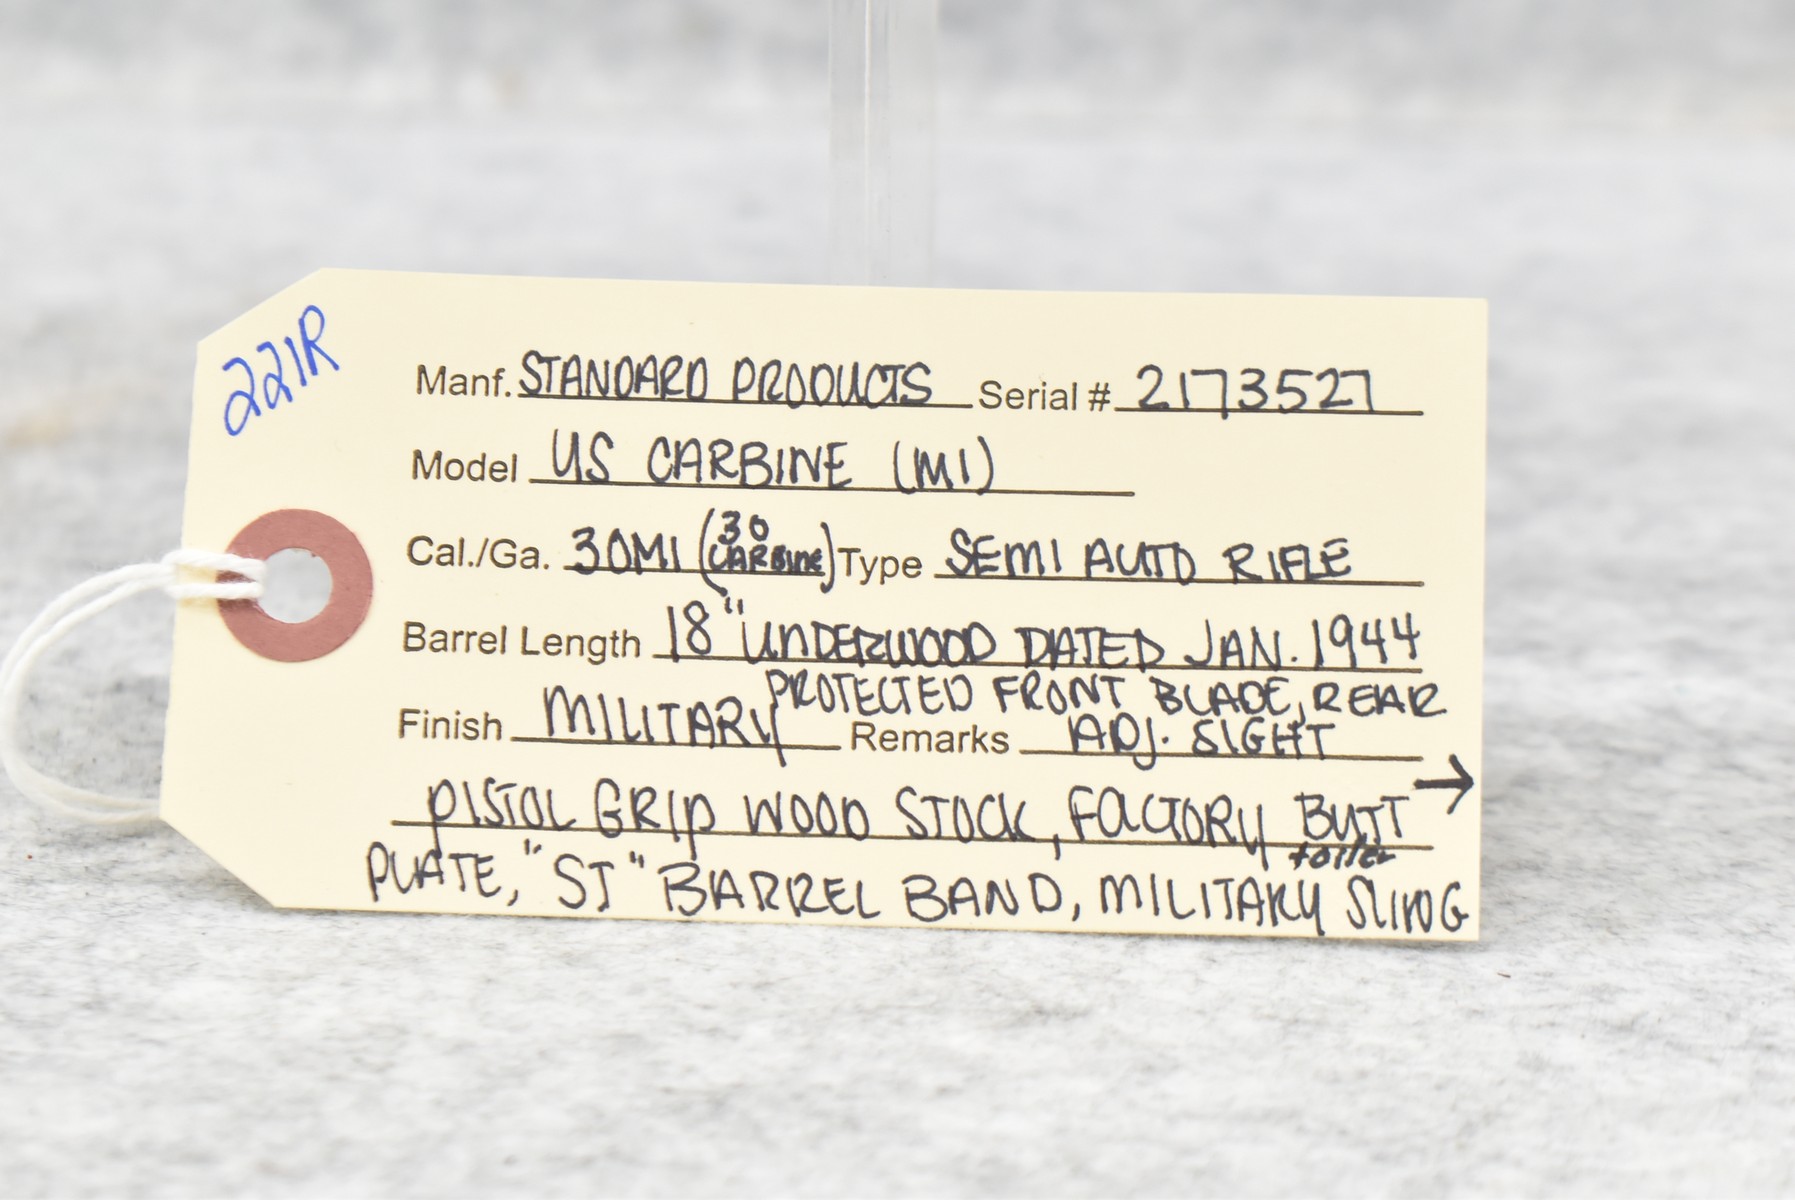 221R
Manf. STANDARD PRODUCTS Serial # 2173527
Model US CARBINE (M1)
Cal./Ga. 30M1 (30 CARBINE) Type SEMI AUTO RIFLE
Barrel Length 18" UNDERWOOD DATED JAN. 1944
PROTECTED FRONT BLADE, REAR
Finish MILITARY Remarks ADJ. SIGHT
PISTOL GRIP WOOD STOCK, FACTORY BUTT →
PLATE, "SI" BARREL BAND, MILITARY SLING